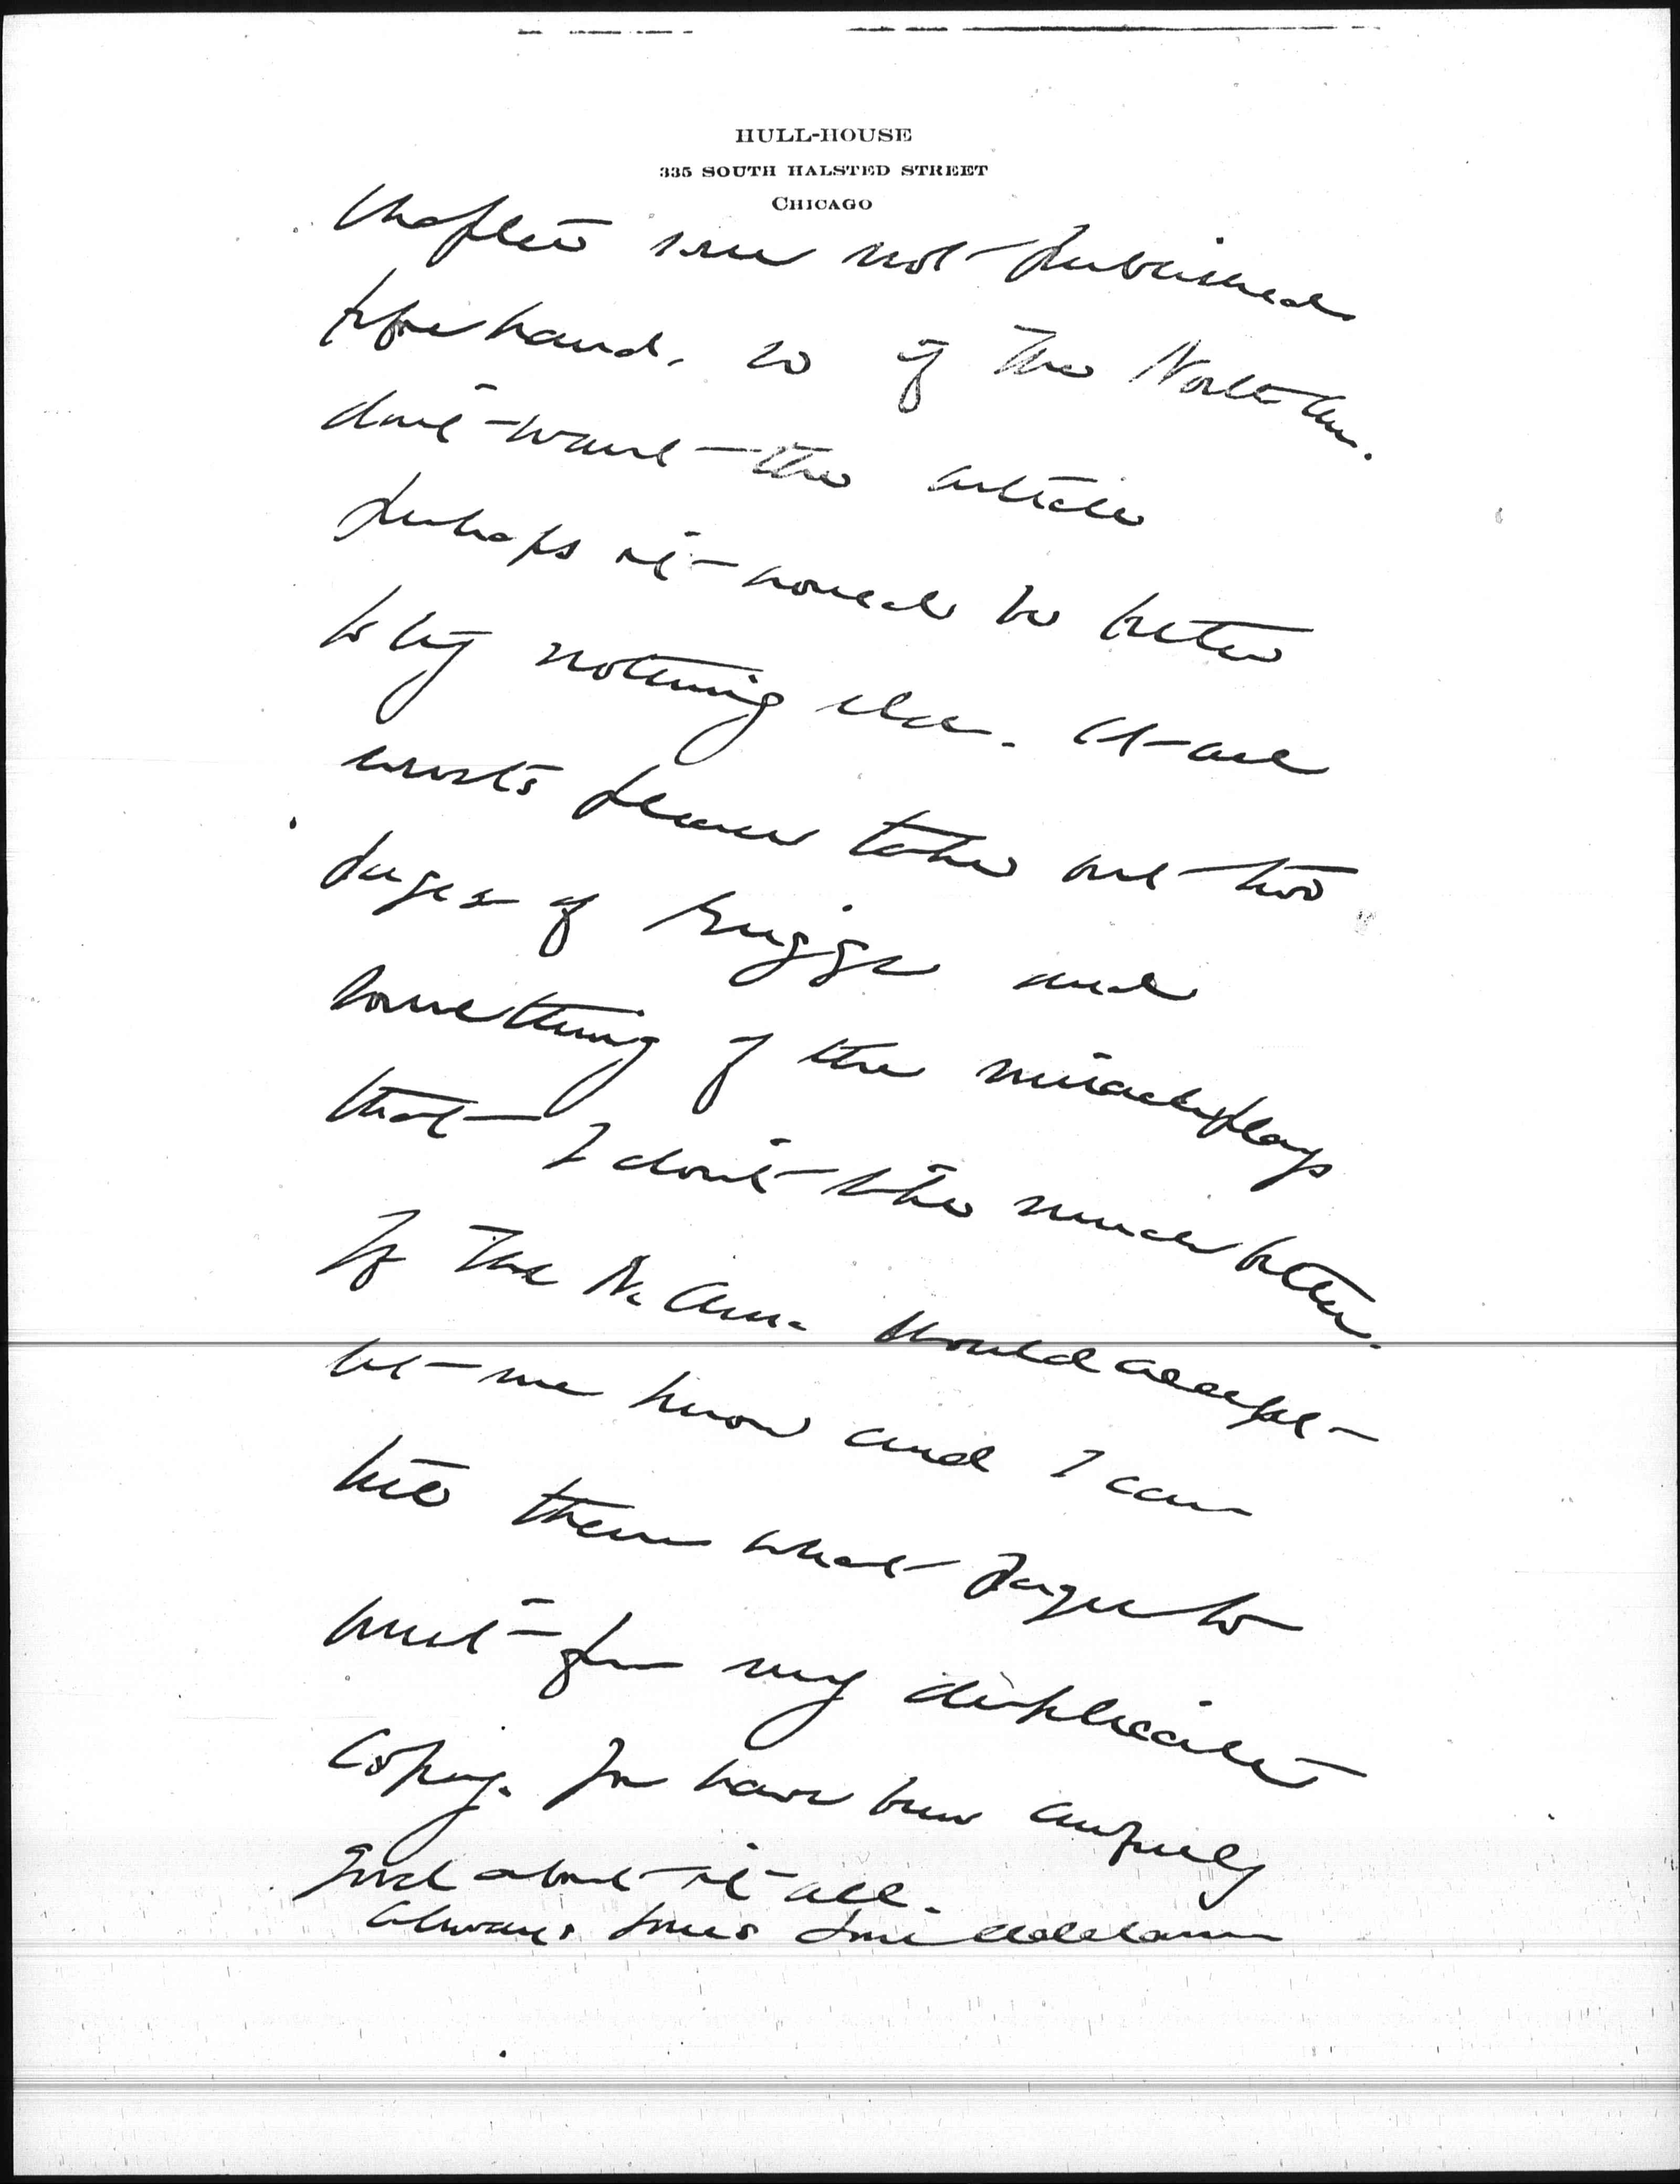 HULL-HOUSE
335 SOUTH HALSTED STREET
CHICAGO
chapter were not published
beforehand. so if the North Am.
don't want the article
perhaps it would be better
to try nothing else. At all
events please take out two
pages of and
something of the miracle plays
that I don't like much better.
If the N. Am. should accept
let me know and I can
write them what pages to
omit from my duplicate
copy. You have been awfully
good about it all.
Always yours Jane Addams